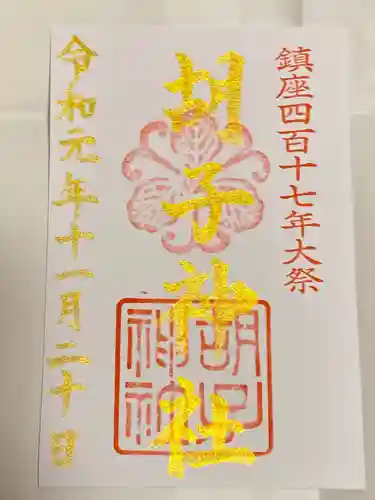 鎮座四百十七年大祭
胡子神社
令和元年十一月二十日
胡子
神社